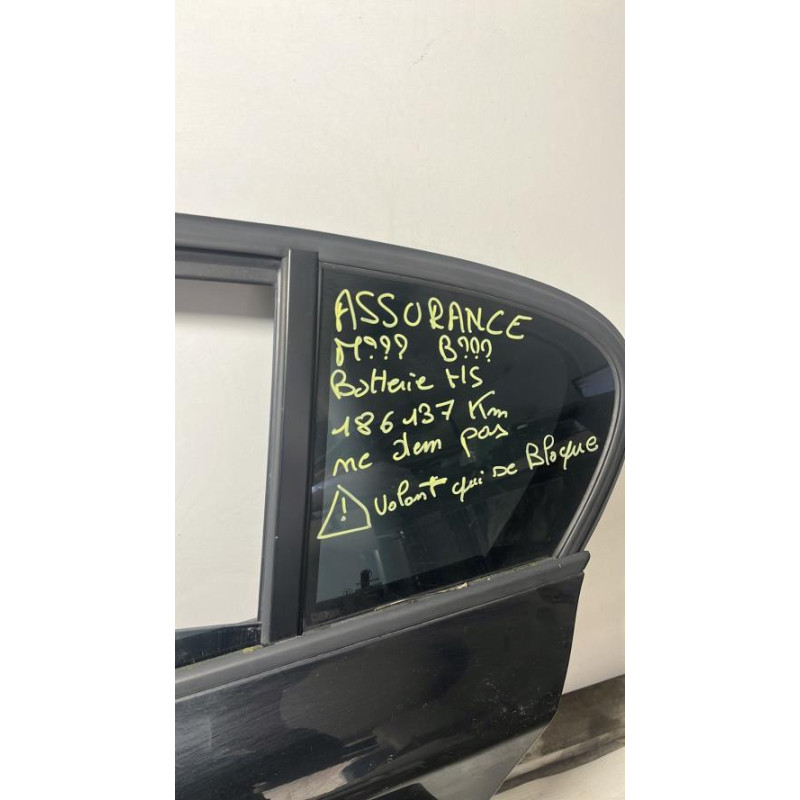 ASSURANCE
M??? B???
Batterie HS
186137 Km
ne dem pas
! Volant qui se Bloque